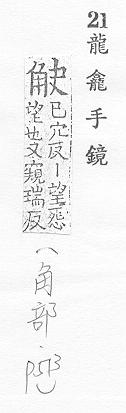 21 龍龕手鏡
觖
已穴反丨望怨
望也又窺瑞反
(角部.